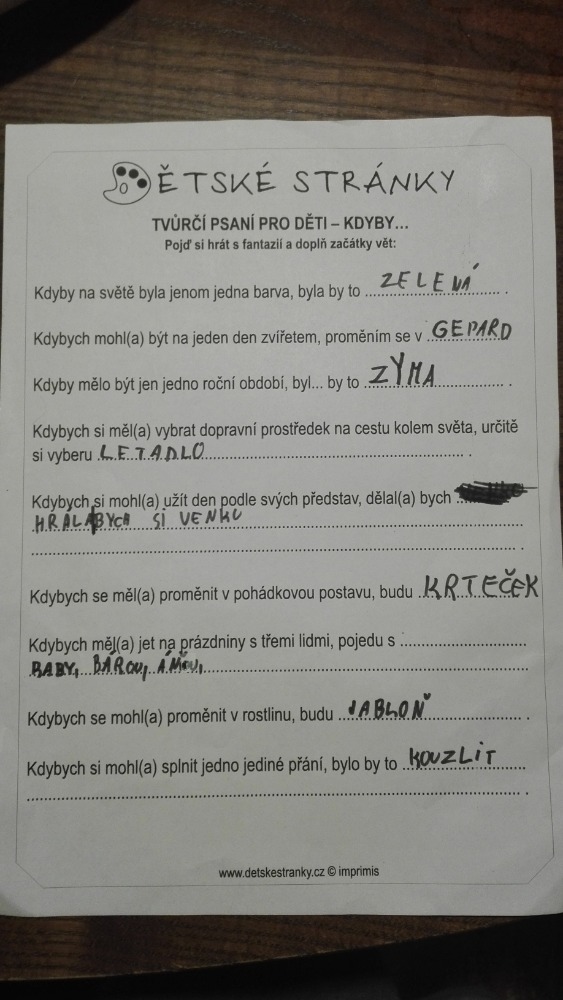 DĚTSKÉ STRÁNKY
TVŮRČÍ PSANÍ PRO DĚTI – KDYBY...
Pojď si hrát s fantazií a doplň začátky vět:
Kdyby na světě byla jenom jedna barva, byla by to ZELENÁ.
Kdybych mohl(a) být na jeden den zvířetem, proměním se v GEPARD
Kdyby mělo být jen jedno roční období, byl... by to ZYMA.
Kdybych si měl(a) vybrat dopravní prostředek na cestu kolem světa, určitě
si vyberu LETADLO.
Kdybych si mohl(a) užít den podle svých představ, dělal(a) bych
HRÁLABYCH SI VENKU
Kdybych se měl(a) proměnit v pohádkovou postavu, budu KRTEČEK
Kdybych měl(a) jet na prázdniny s třemi lidmi, pojedu s
BABY, BÁROU,
Kdybych se mohl(a) proměnit v rostlinu, budu JABLOŇ.
Kdybych si mohl(a) splnit jedno jediné přání, bylo by to KOUZLIT
www.detskestranky.cz © imprimis